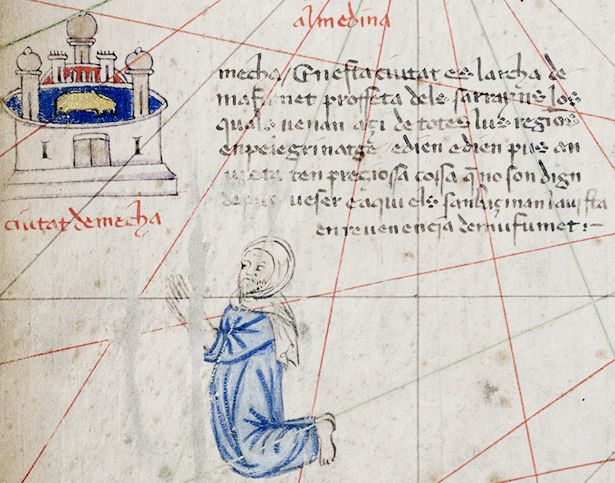 almedina
mecha / En esta ciutat es larcha de
mafumet proffeta dels sarrayns los
quals venan açi de totes lus regions
en pelegrinatge e dien e dien pus an
vista ten preçiosa cossa q no son dign
de pus veser e aqui els san luçman la vista
en reverencja de mufumet :-
ciutat de mecha